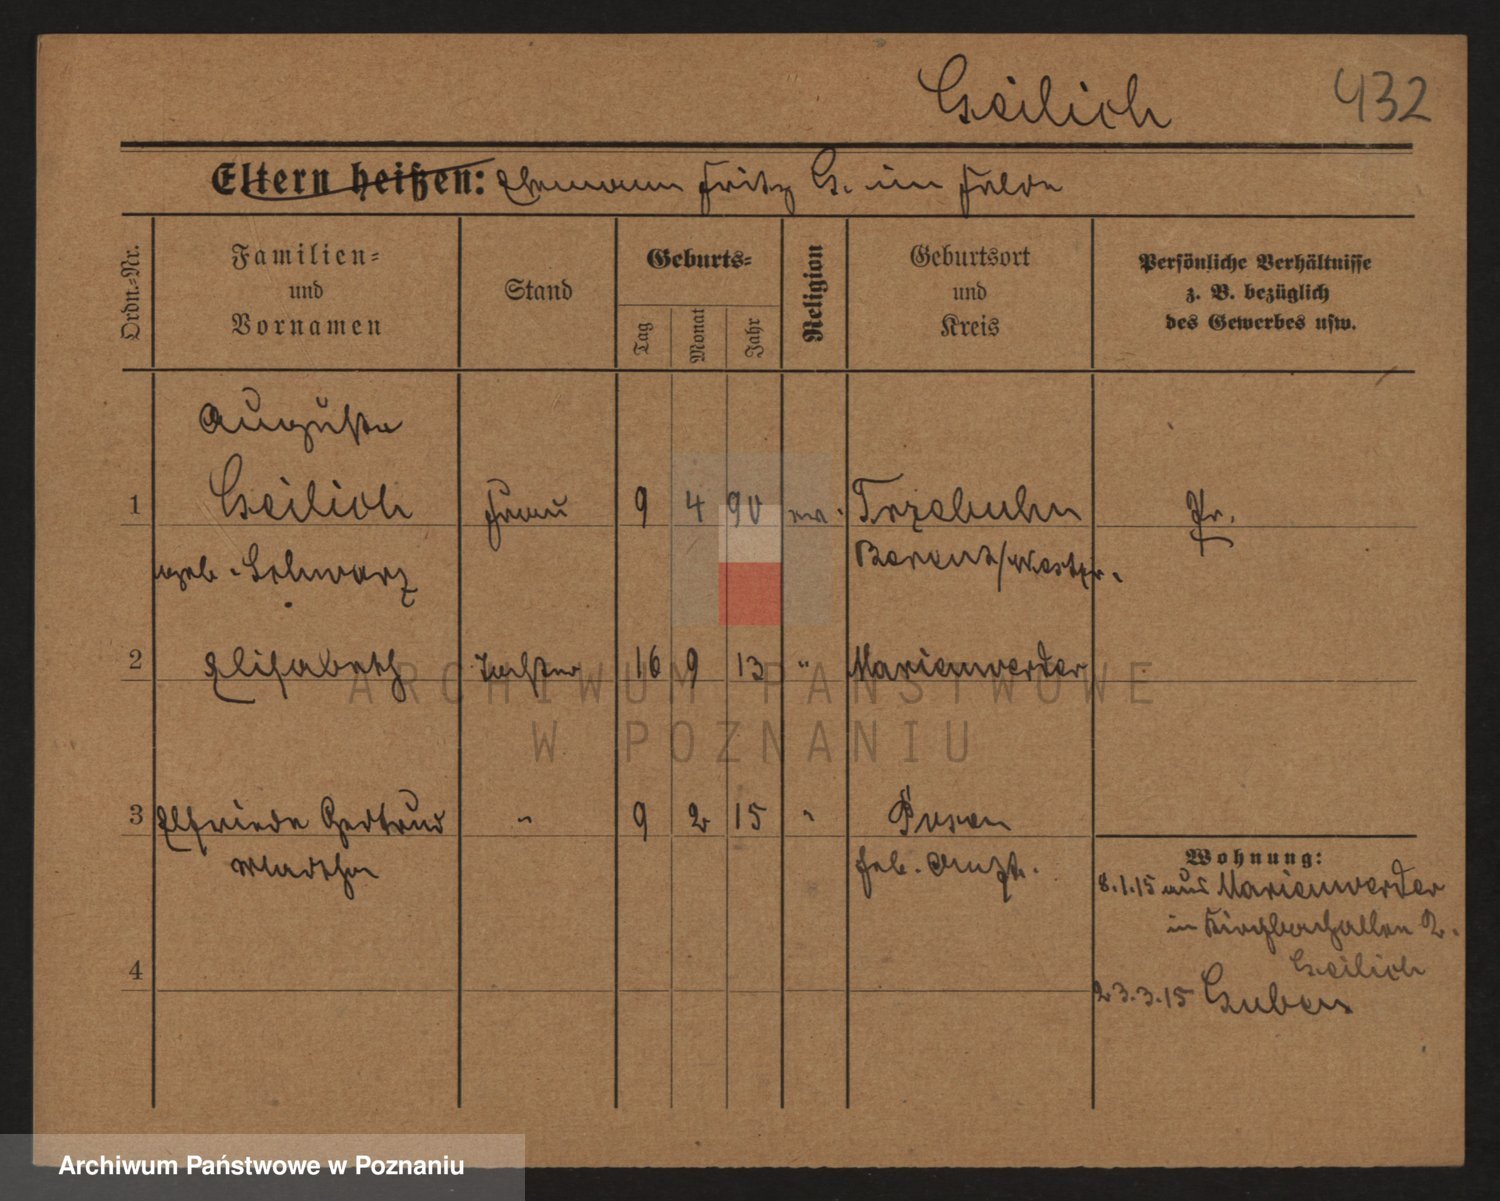 Geilich 432
Eltern heißen: Ehemann Fritz G. im Felde
Ordn.-Nr.
Familien-
und
Vornamen
Stand
Geburts-
Tag
Monat
Jahr
Religion
Geburtsort
und
Kreis
Persönliche Verhältnisse
z. B. bezüglich
des Gewerbes usw.
Auguste
1 Geilich Frau 9 4 90 ev. Trzebuhn Pr.
geb. Schwarz Berent/Westpr.
2 Elisabeth Tochter 16 9 13 " Marienwerder
3 Elfriede Gertrud " 9 2 15 " Posen
Martha
Wohnung:
8.1.15 aus Marienwerder
in 2.
Geilich
4
23.3.15 Guben
ARCHIWUM PAŃSTWOWE
W POZNANIU
Archiwum Państwowe w Poznaniu